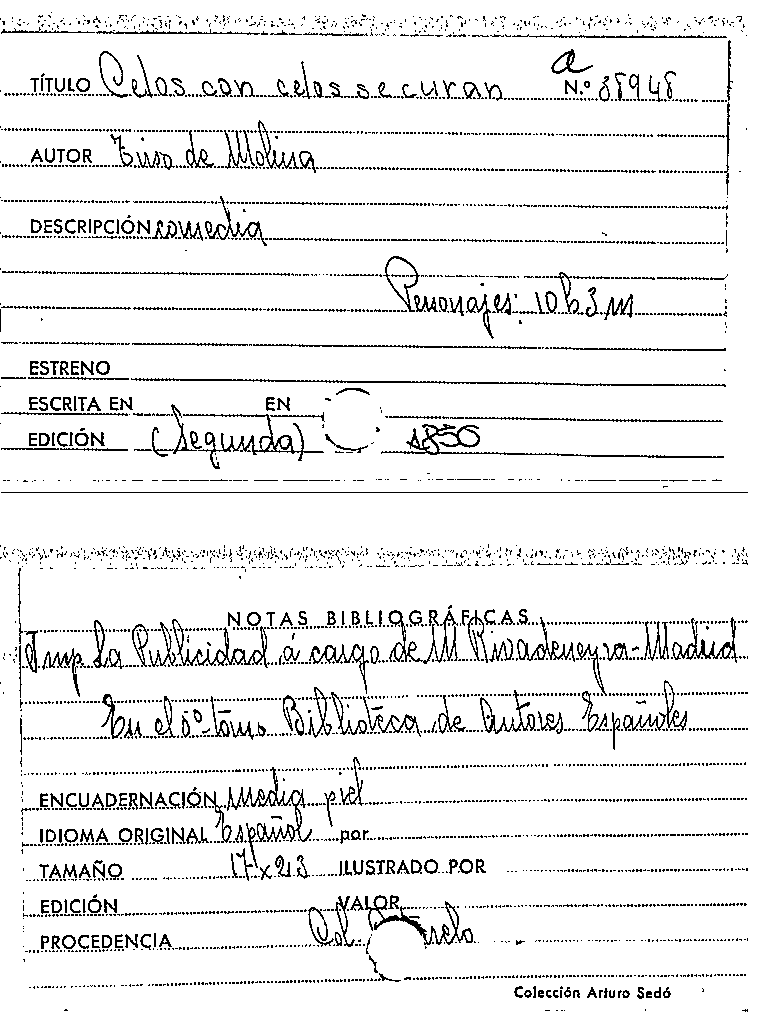 a
TÍTULO Celos con celos se curan N.º 38948
AUTOR Tirso de Molina
DESCRIPCIÓN comedia
Personajes: 10 h 3 m
ESTRENO
ESCRITA EN EN
EDICIÓN (Segunda) 1850
NOTAS BIBLIOGRÁFICAS
Imp La Publicidad á cargo de M Rivadeneyra-Madrid
En el 5º tomo Biblioteca de Autores Españoles
ENCUADERNACIÓN Media piel
IDIOMA ORIGINAL Español por
TAMAÑO 17 x 23 ILUSTRADO POR
EDICIÓN VALOR
PROCEDENCIA Col.
Colección Arturo Sedó